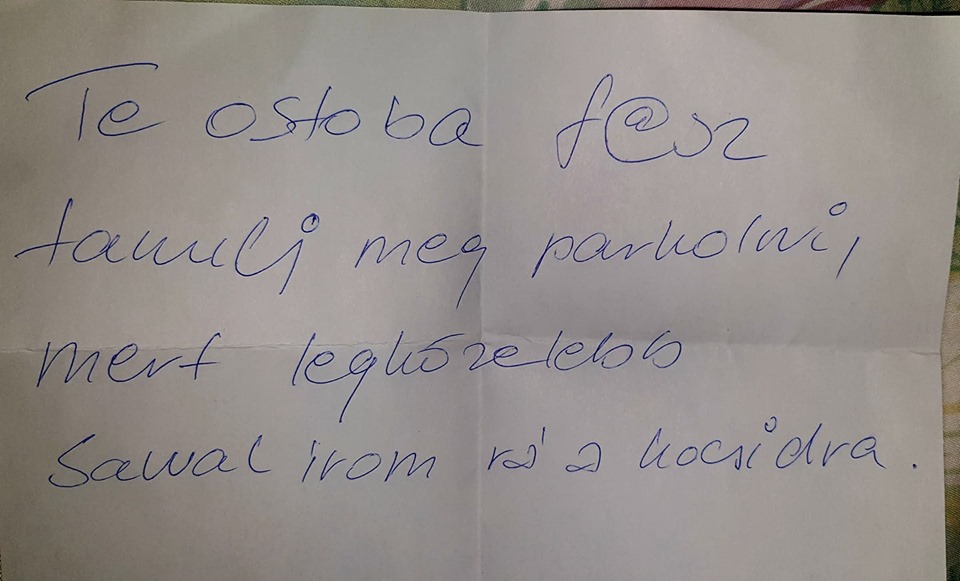 Te ostoba f@sz
tanulj meg parkolni,
mert legközelebb
savval irom rá a kocsidra.